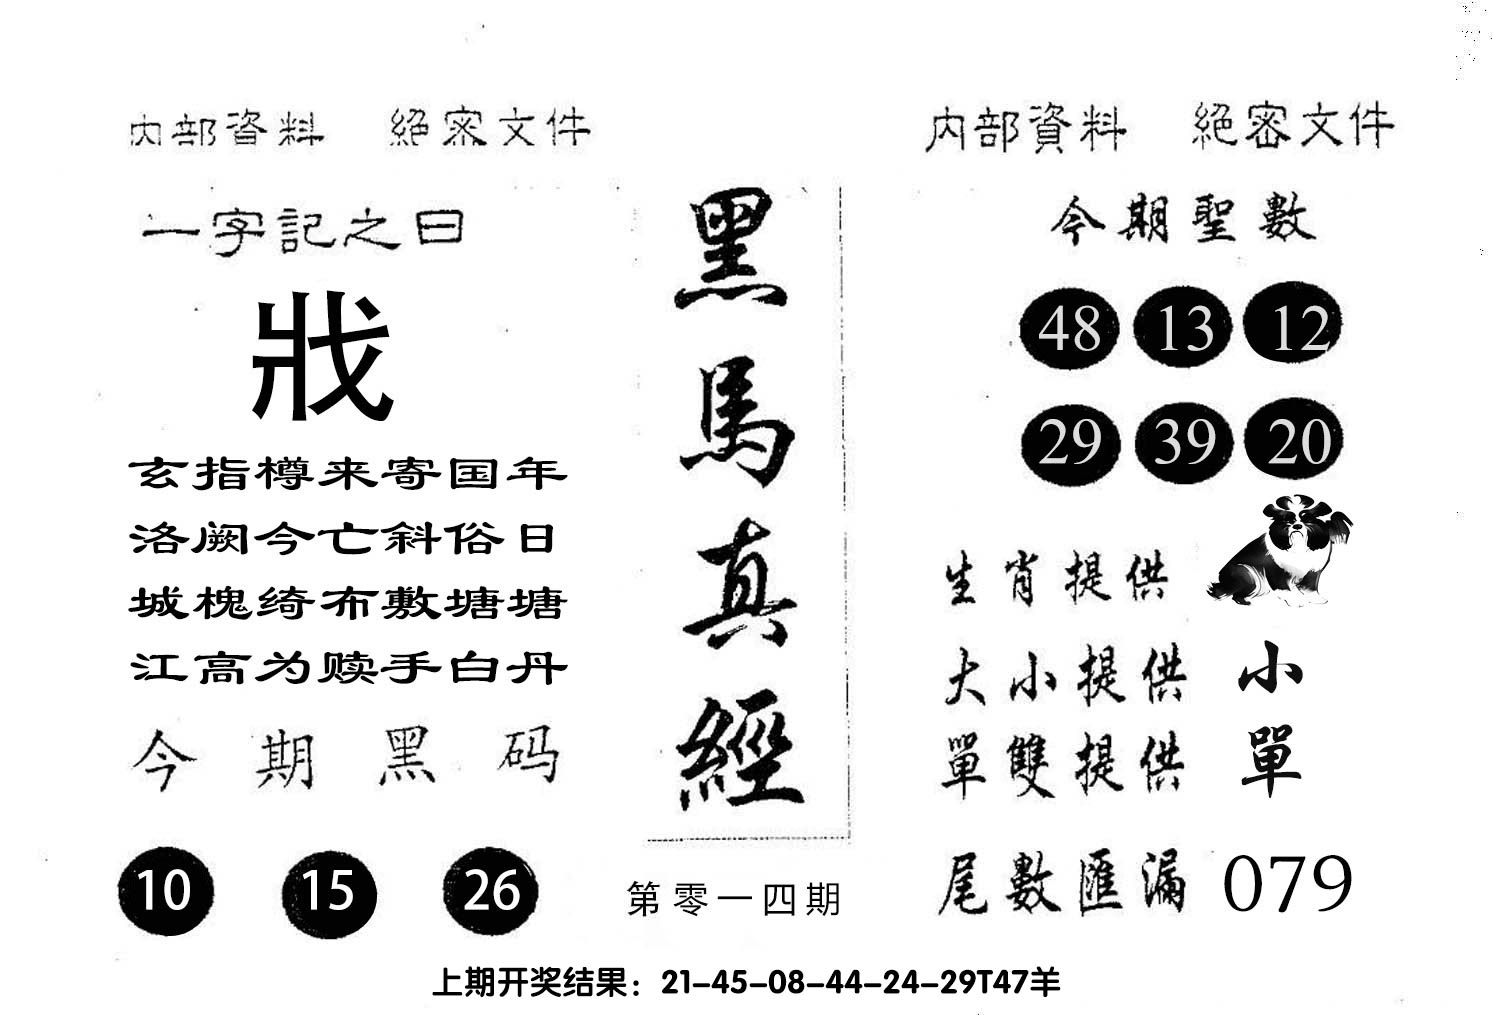 内部資料 絕密文件
一字記之曰
戕
玄指樽来寄国年
洛阙今亡斜俗日
城槐绮布敷塘塘
江高为赎手白丹
今期黑码
10 15 26
黑馬真經
第零一四期
内部資料 絕密文件
今期聖數
48 13 12
29 39 20
生肖提供
大小提供 小
單雙提供 單
尾數匯漏 079
上期开奖结果：21-45-08-44-24-29T47羊